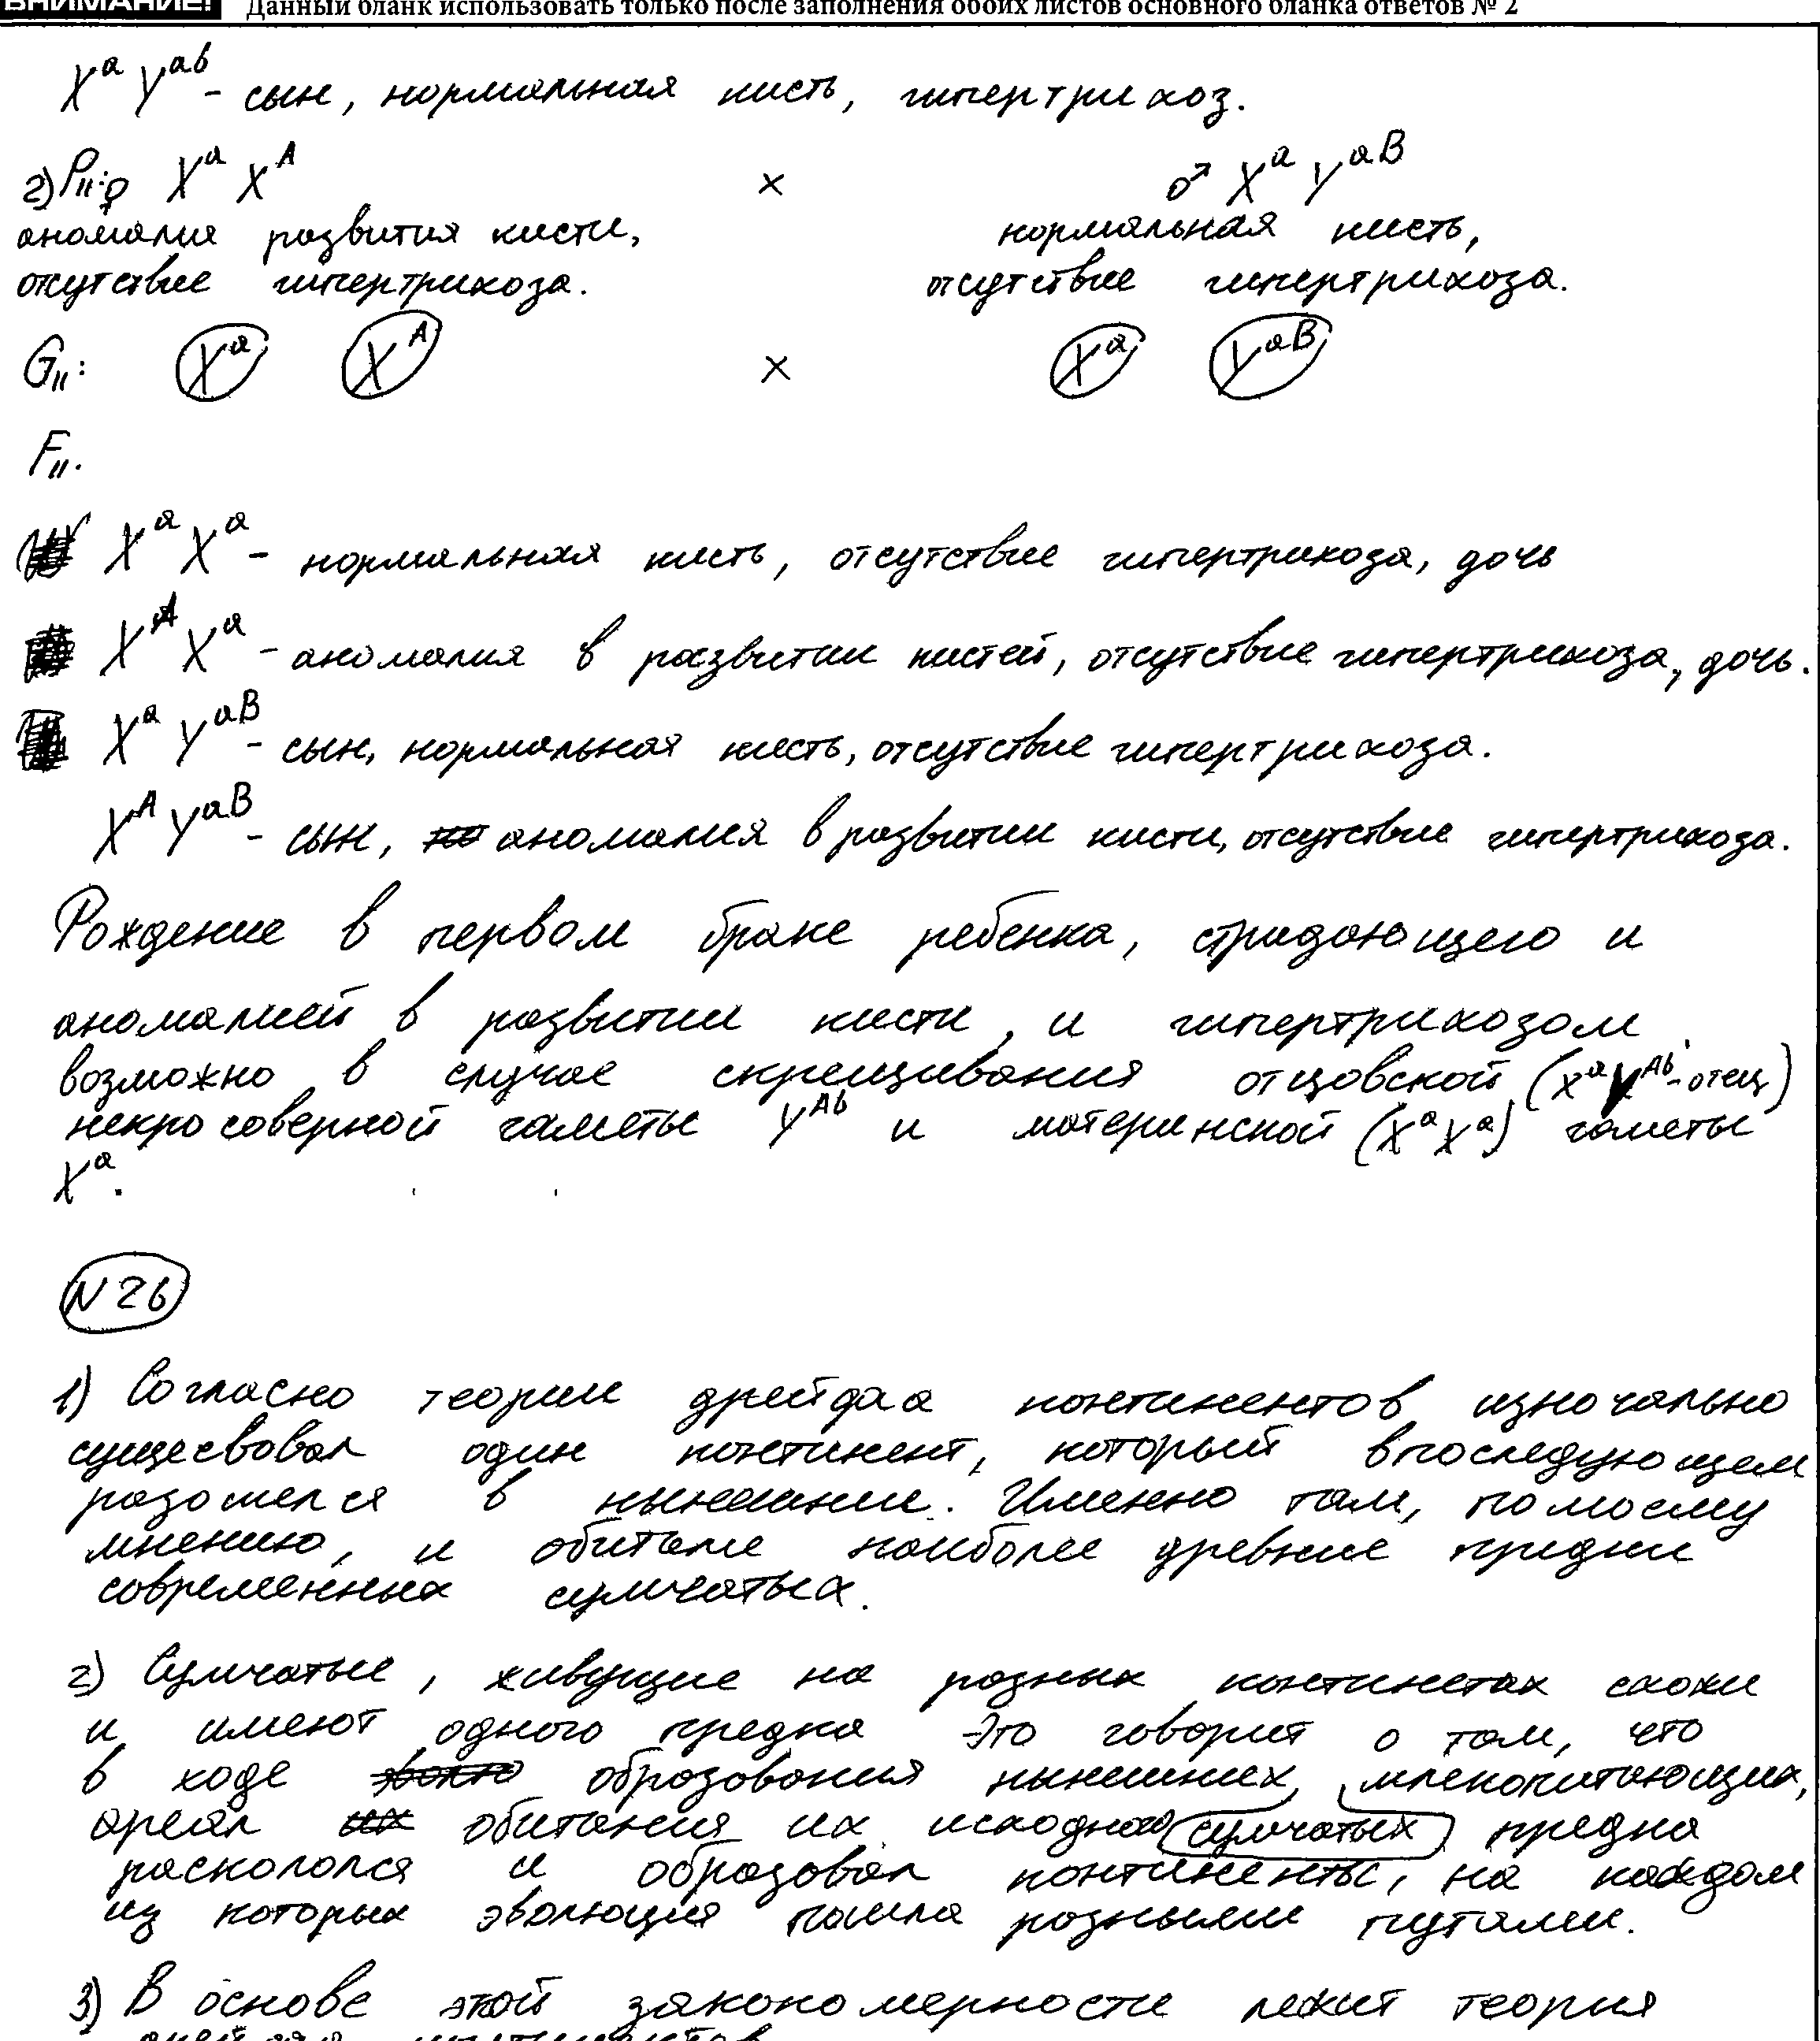 ВНИМАНИЕ! Данный бланк использовать только после заполнения обоих листов основного бланка ответов № 2
XᵃYᵃᵇ - сын, нормальная кисть, гипертрихоз.
2) P₁₁: ♀ Xᵃ Xᴬ × ♂ Xᵃ Yᵃᴮ
аномалия развития кисти, нормальная кисть,
отсутствие гипертрихоза. отсутствие гипертрихоза.
G₁₁: Xᵃ Xᴬ × Xᵃ Yᵃᴮ
F₁₁.
XᵃXᵃ - нормальная кисть, отсутствие гипертрихоза, дочь
XᴬXᵃ - аномалия в развитии кистей, отсутствие гипертрихоза, дочь.
XᵃYᵃᴮ - сын, нормальная кисть, отсутствие гипертрихоза.
XᴬYᵃᴮ - сын, аномалия в развитии кисти, отсутствие гипертрихоза.
Рождение в первом браке ребенка, страдающего и
аномалией в развитии кисти, и гипертрихозом
возможно в случае скрещивания отцовской (XᵃYᴬᵇ-отец)
некросоверной гаметы Yᴬᵇ и материнской (XᵃXᵃ) гаметы
Xᵃ.
N 26
1) Согласно теории дрейдаа континентов изночально
сущесвовал один континент, который впоследующем
разомелся в нынешние. Именно там, по моему
мнению, и обитали наиболее древние предки
современных сумчатых.
2) Сумчатые, живущие на разных континетах схожи
и имеют одного предка Это говорит о том, что
в ходе образования нынешних сумчатых млекопитающих,
ареал обитания их исходного предка
раскололся и образовал континенты, на каждом
из которых эволюция пошла разными путями.
3) В основе этой закономерности лежит теория